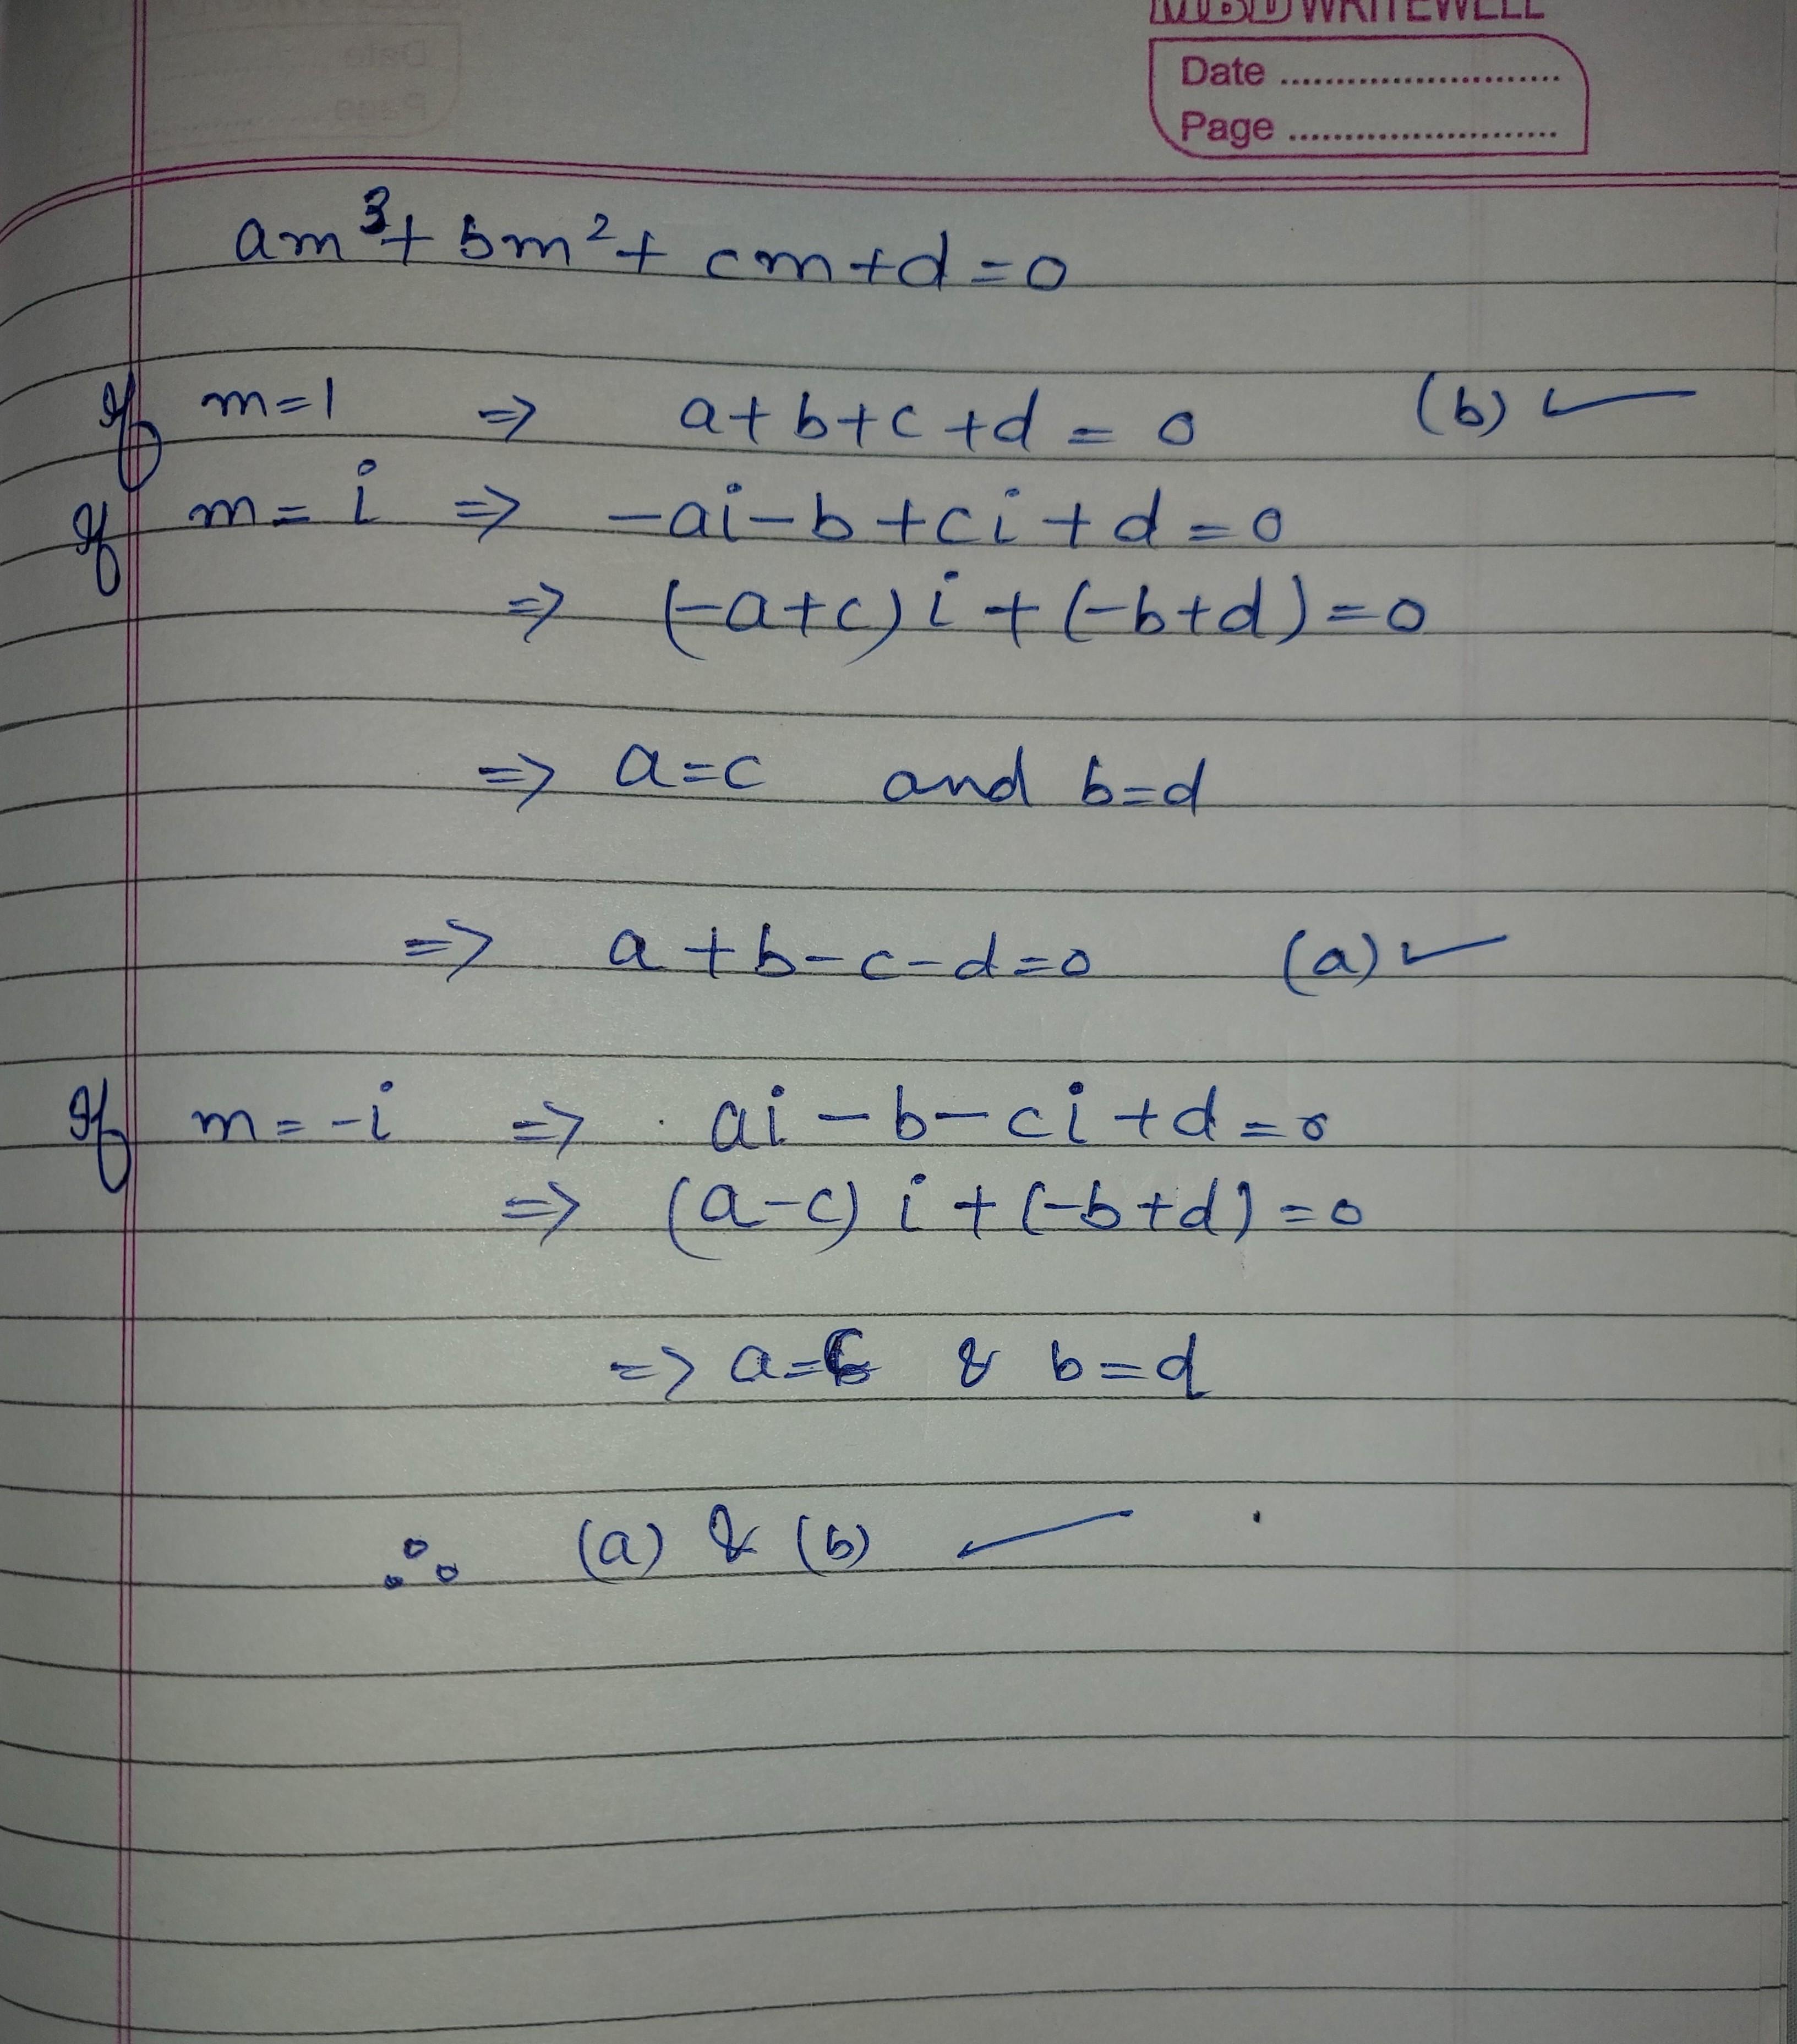 MBD WRITEWELL
Date ..........................
Page .........................
am³ + bm² + cm + d = 0
If m = 1 ⇒ a + b + c + d = 0 (b) ✓
If m = i ⇒ -ai - b + ci + d = 0
⇒ (-a+c) i + (-b+d) = 0
⇒ a = c and b = d
⇒ a + b - c - d = 0 (a) ✓
If m = -i ⇒ ai - b - ci + d = 0
⇒ (a-c) i + (-b+d) = 0
⇒ a = c & b = d
∴ (a) & (b) ✓